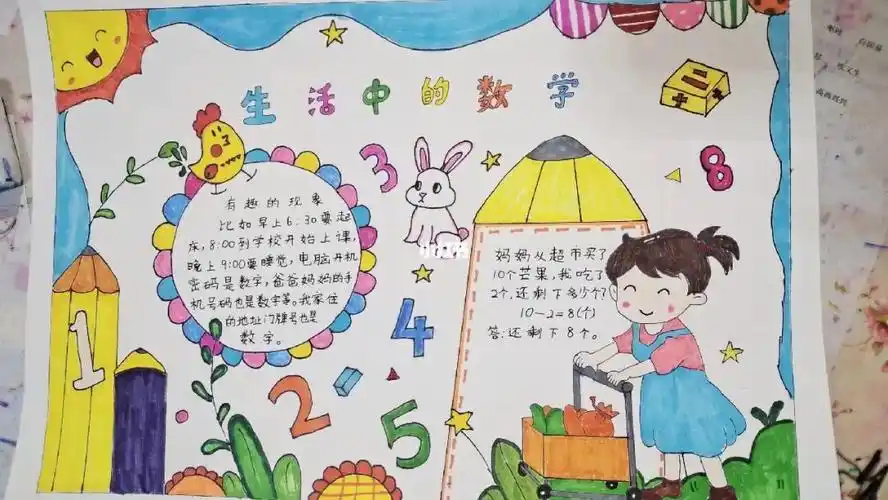 生活中的数学
3
8
有趣的现象
比如早上6:30要起
床,8:00到学校开始上课,
晚上9:00要睡觉,电脑开机
密码是数字,爸爸妈妈的手
机号码也是数字等。我家住
的地址门牌号也是
数字。
小红书
妈妈从超市买了
10个芒果,我吃了
2个,还剩下多少个?
10-2=8(个)
答:还剩下8个。
1
4
2
5